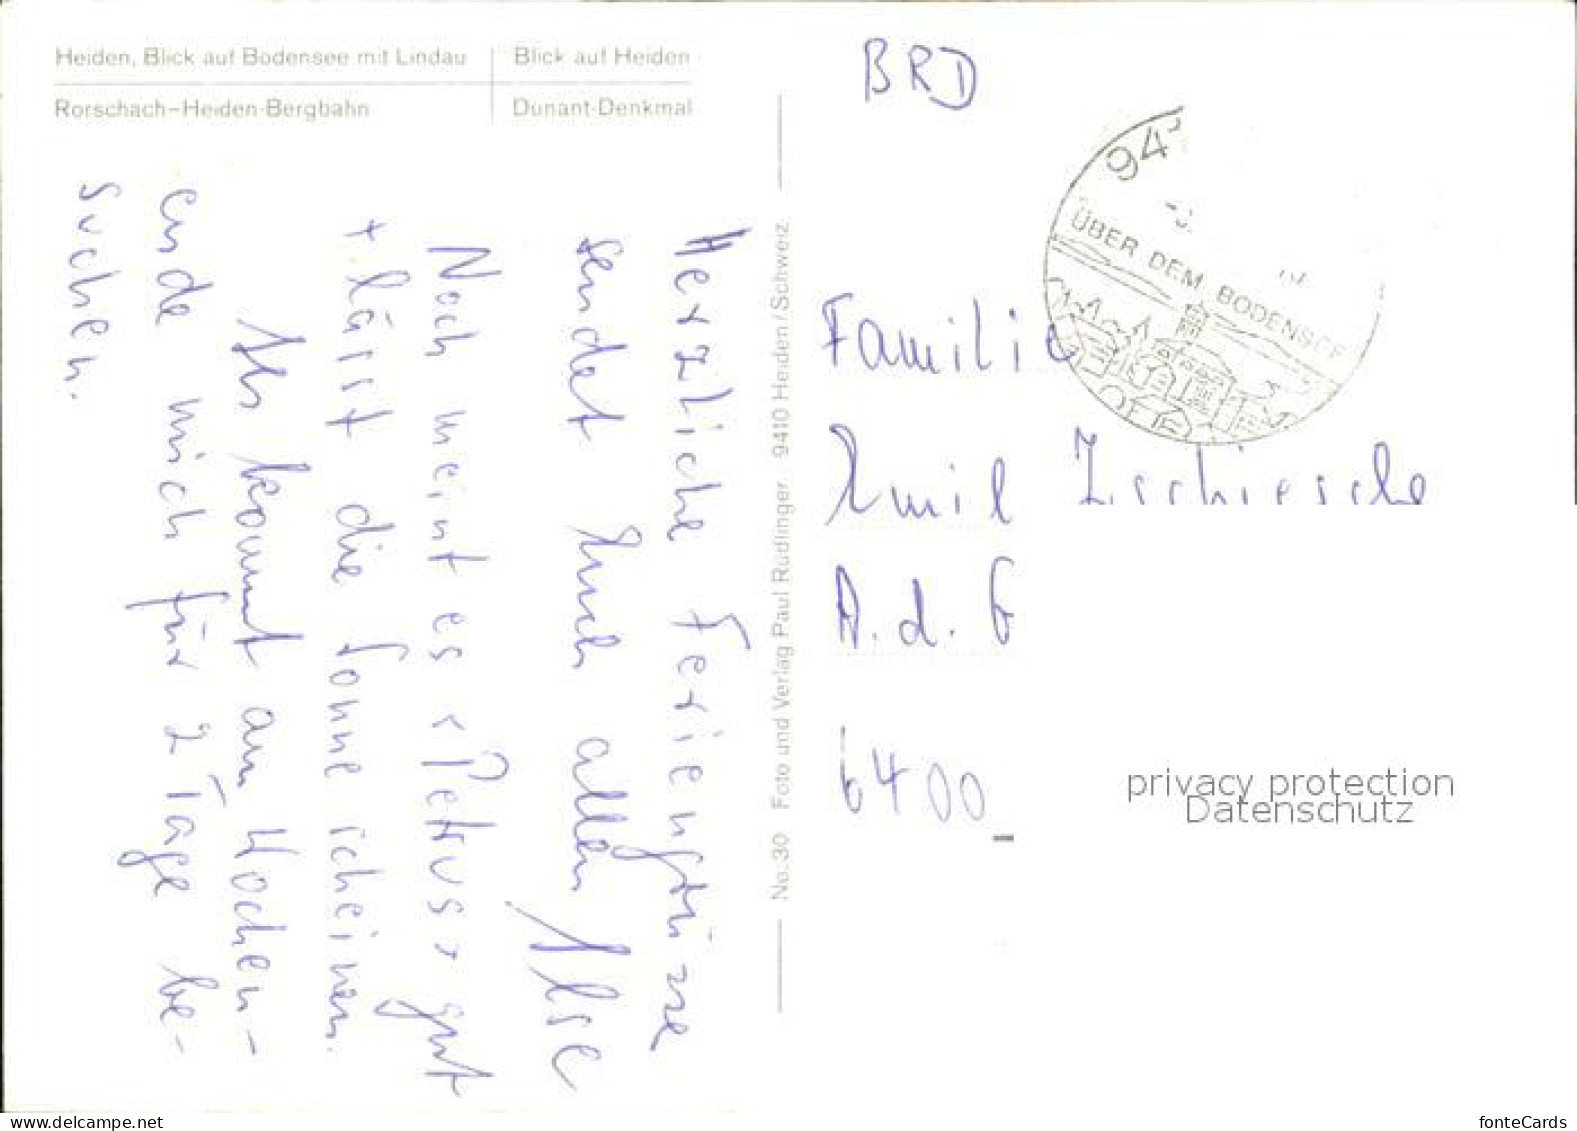 Heiden, Blick auf Bodensee mit Lindau
Blick auf Heiden
Rorschach-Heiden-Bergbahn
Dunant-Denkmal
Herzliche Feriengrüsse
sendet Euch allen Ilse
Noch meint es "Petrus" gut
+ lässt die Sonne scheinen.
Ilse kommt am Wochen-
ende mich für 2 Tage be-
suchen.
No. 30 Foto und Verlag Paul Rüdlinger 9410 Heiden/Schweiz
BRD
94
ÜBER DEM BODENSEE
Familie
Emil Zschiesche
A. d. G
6400
privacy protection
Datenschutz
www.delcampe.net
fonteCards